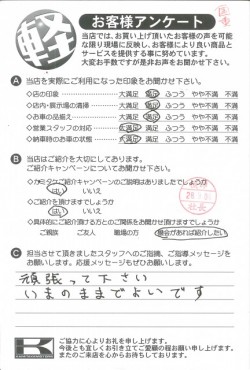 軽
お客様アンケート
当店では、お買い上げ頂いたお客様の声を可能
な限り現場に反映し、お客様により良い商品と
サービスを提供する事に努めています。
大変お手数ですが是非お声をお聞かせ下さい。
A 当店を実際にご利用になった印象をお聞かせ下さい。
◇店の印象 大満足 満足 ふつう やや不満 不満
◇店内・展示場の清掃 大満足 満足 ふつう やや不満 不満
◇お車の品揃え 大満足 満足 ふつう やや不満 不満
◇営業スタッフの対応 大満足 満足 ふつう やや不満 不満
◇納車時のお車の状態 大満足 満足 ふつう やや不満 不満
B 当店はご紹介を大切にしております。
ご紹介キャンペーンについてお聞かせ下さい。
◇カミタケご紹介キャンペーンのご説明はありましたでしょうか
はい いいえ
◇ご紹介を頂けますでしょうか
はい いいえ
◇具体的にご紹介頂ける方とのご関係をお聞かせ頂けますでしょうか
ご親族 ご友人 職場の方 機会があれば紹介したい
C 担当させて頂きましたスタッフへのご指摘、ご指導メッセージを
お願いします。応援メッセージもぜひお願いします。
頑張って下さい
いまのままでよいです
K
ご協力に心よりお礼を申し上げます。
今後とも宜しくお引き立てご愛顧の程お願い申し上げます。
またのご来店を心からお待ちしております。